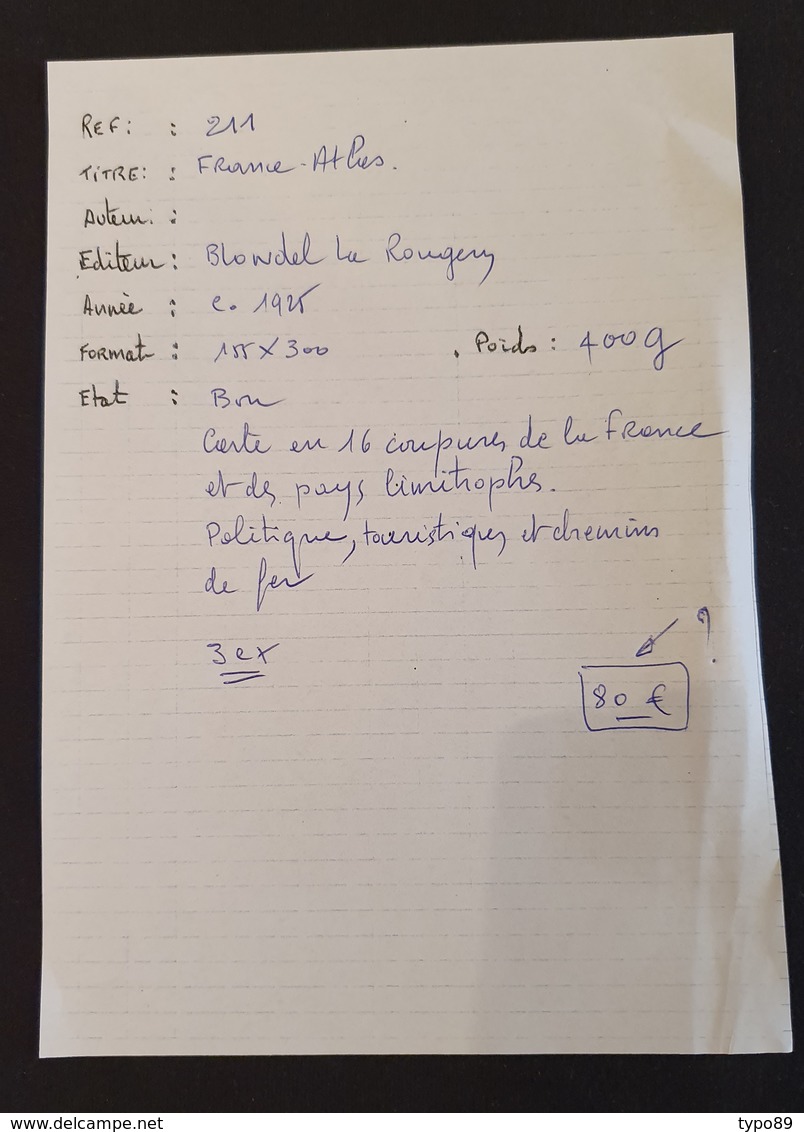 REF: : 211
TITRE: : FRance-Atlas.
Auteur: :
Editeur: Blondel La Rougery
Année : c. 1925
FORMAT : 155 X 300 . Poids : 400g
Etat : Bon
Carte en 16 coupures de la France
et des pays limitrophes.
Politique, touristique, et chemins
de fer
3 ex
?
80 €
www.delcampe.net
typo89